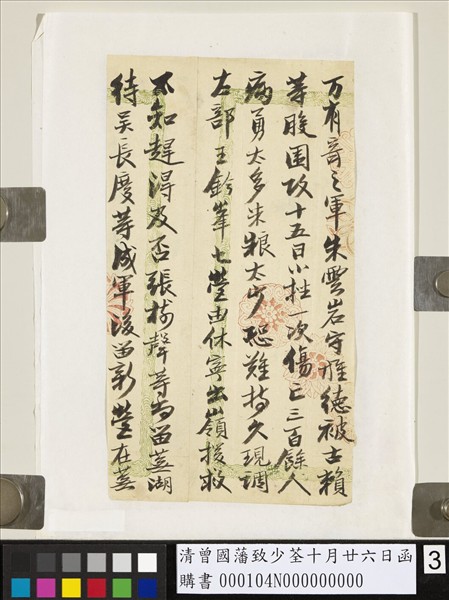 万有奇之軍朱雲岩守旌德被古賴
等股圍攻十五日小挫一次傷亡三百餘人
病勇太多米糧太少恐難持久現調
左部王鈐峯七營由休寧出嶺援救
不知趕得及否張樹聲等尚留蕪湖
待吳長慶等成軍後留新營在蕪
清曾國藩致少荃十月廿六日函
購書 000104N000000000
3